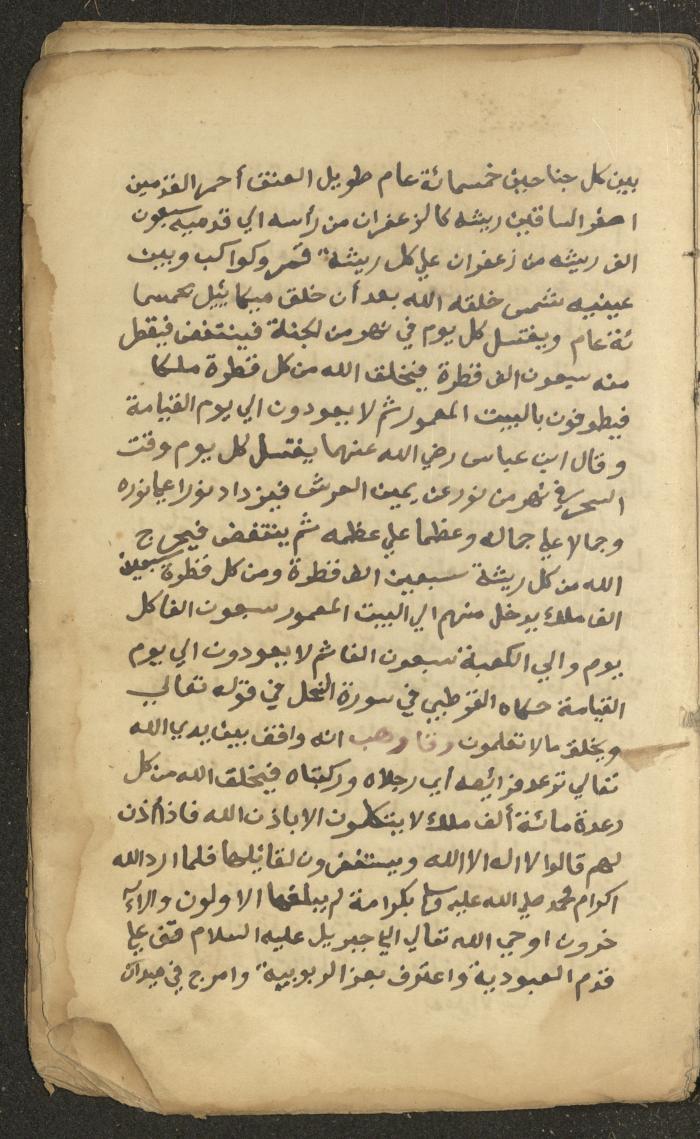 بين كل جناحين خمسمائة عام طويل العنق أحمر القدمين
اصفر الساقين ريشه كالزعفران من رأسه الي قدميه سبعون
الف ريشه من زعفران علي كل ريشة قمر وكواكب وبين
عينيه شمس خلقه الله بعد أن خلق ميكائيل بخمسما
ئة عام ويغتسل كل يوم في نهر من الجنة فينتفض فيقطر
منه سبعون الف قطرة فيخلق الله من كل قطرة ملكا
فيطوفون بالبيت المعمور ثم لا يعودون الي يوم القيامة
وقال ابن عباس رضي الله عنهما يغتسل كل يوم وقت
السحر في نهر من نور عن يمين العرش فيزداد نورا علي نوره
وجمالا علي جماله وعظما علي عظمه ثم ينتفض فيخرج
الله من كل ريشة سبعين الف قطرة ومن كل قطرة سبعين
الف ملك يدخل منهم الي البيت المعمور سبعون الفا كل
يوم والي الكعبة سبعون الفا ثم لا يعودون الي يوم
القيامة حكاه القرطبي في سورة النحل في قوله تعالي
ويخلق ما لا تعلمون وهب انه واقف بين يدي الله
تعالي ترعد فرائصه أي رجلاه وركبتاه فيخلق الله من كل
رعدة مائة ألف ملك لا يتكلمون الا باذن الله فاذا أذن
لهم قالوا لا اله الا الله ويستغفرون لقائلها فلما اراد الله
اكرام محمد صلي الله عليه وسلم بكرامة لم يبلغها الاولون والآ
خرون اوحي الله تعالي الي جبريل عليه السلام قف علي
قدم العبودية واعترف بعز الربوبية وامرح في ميدان